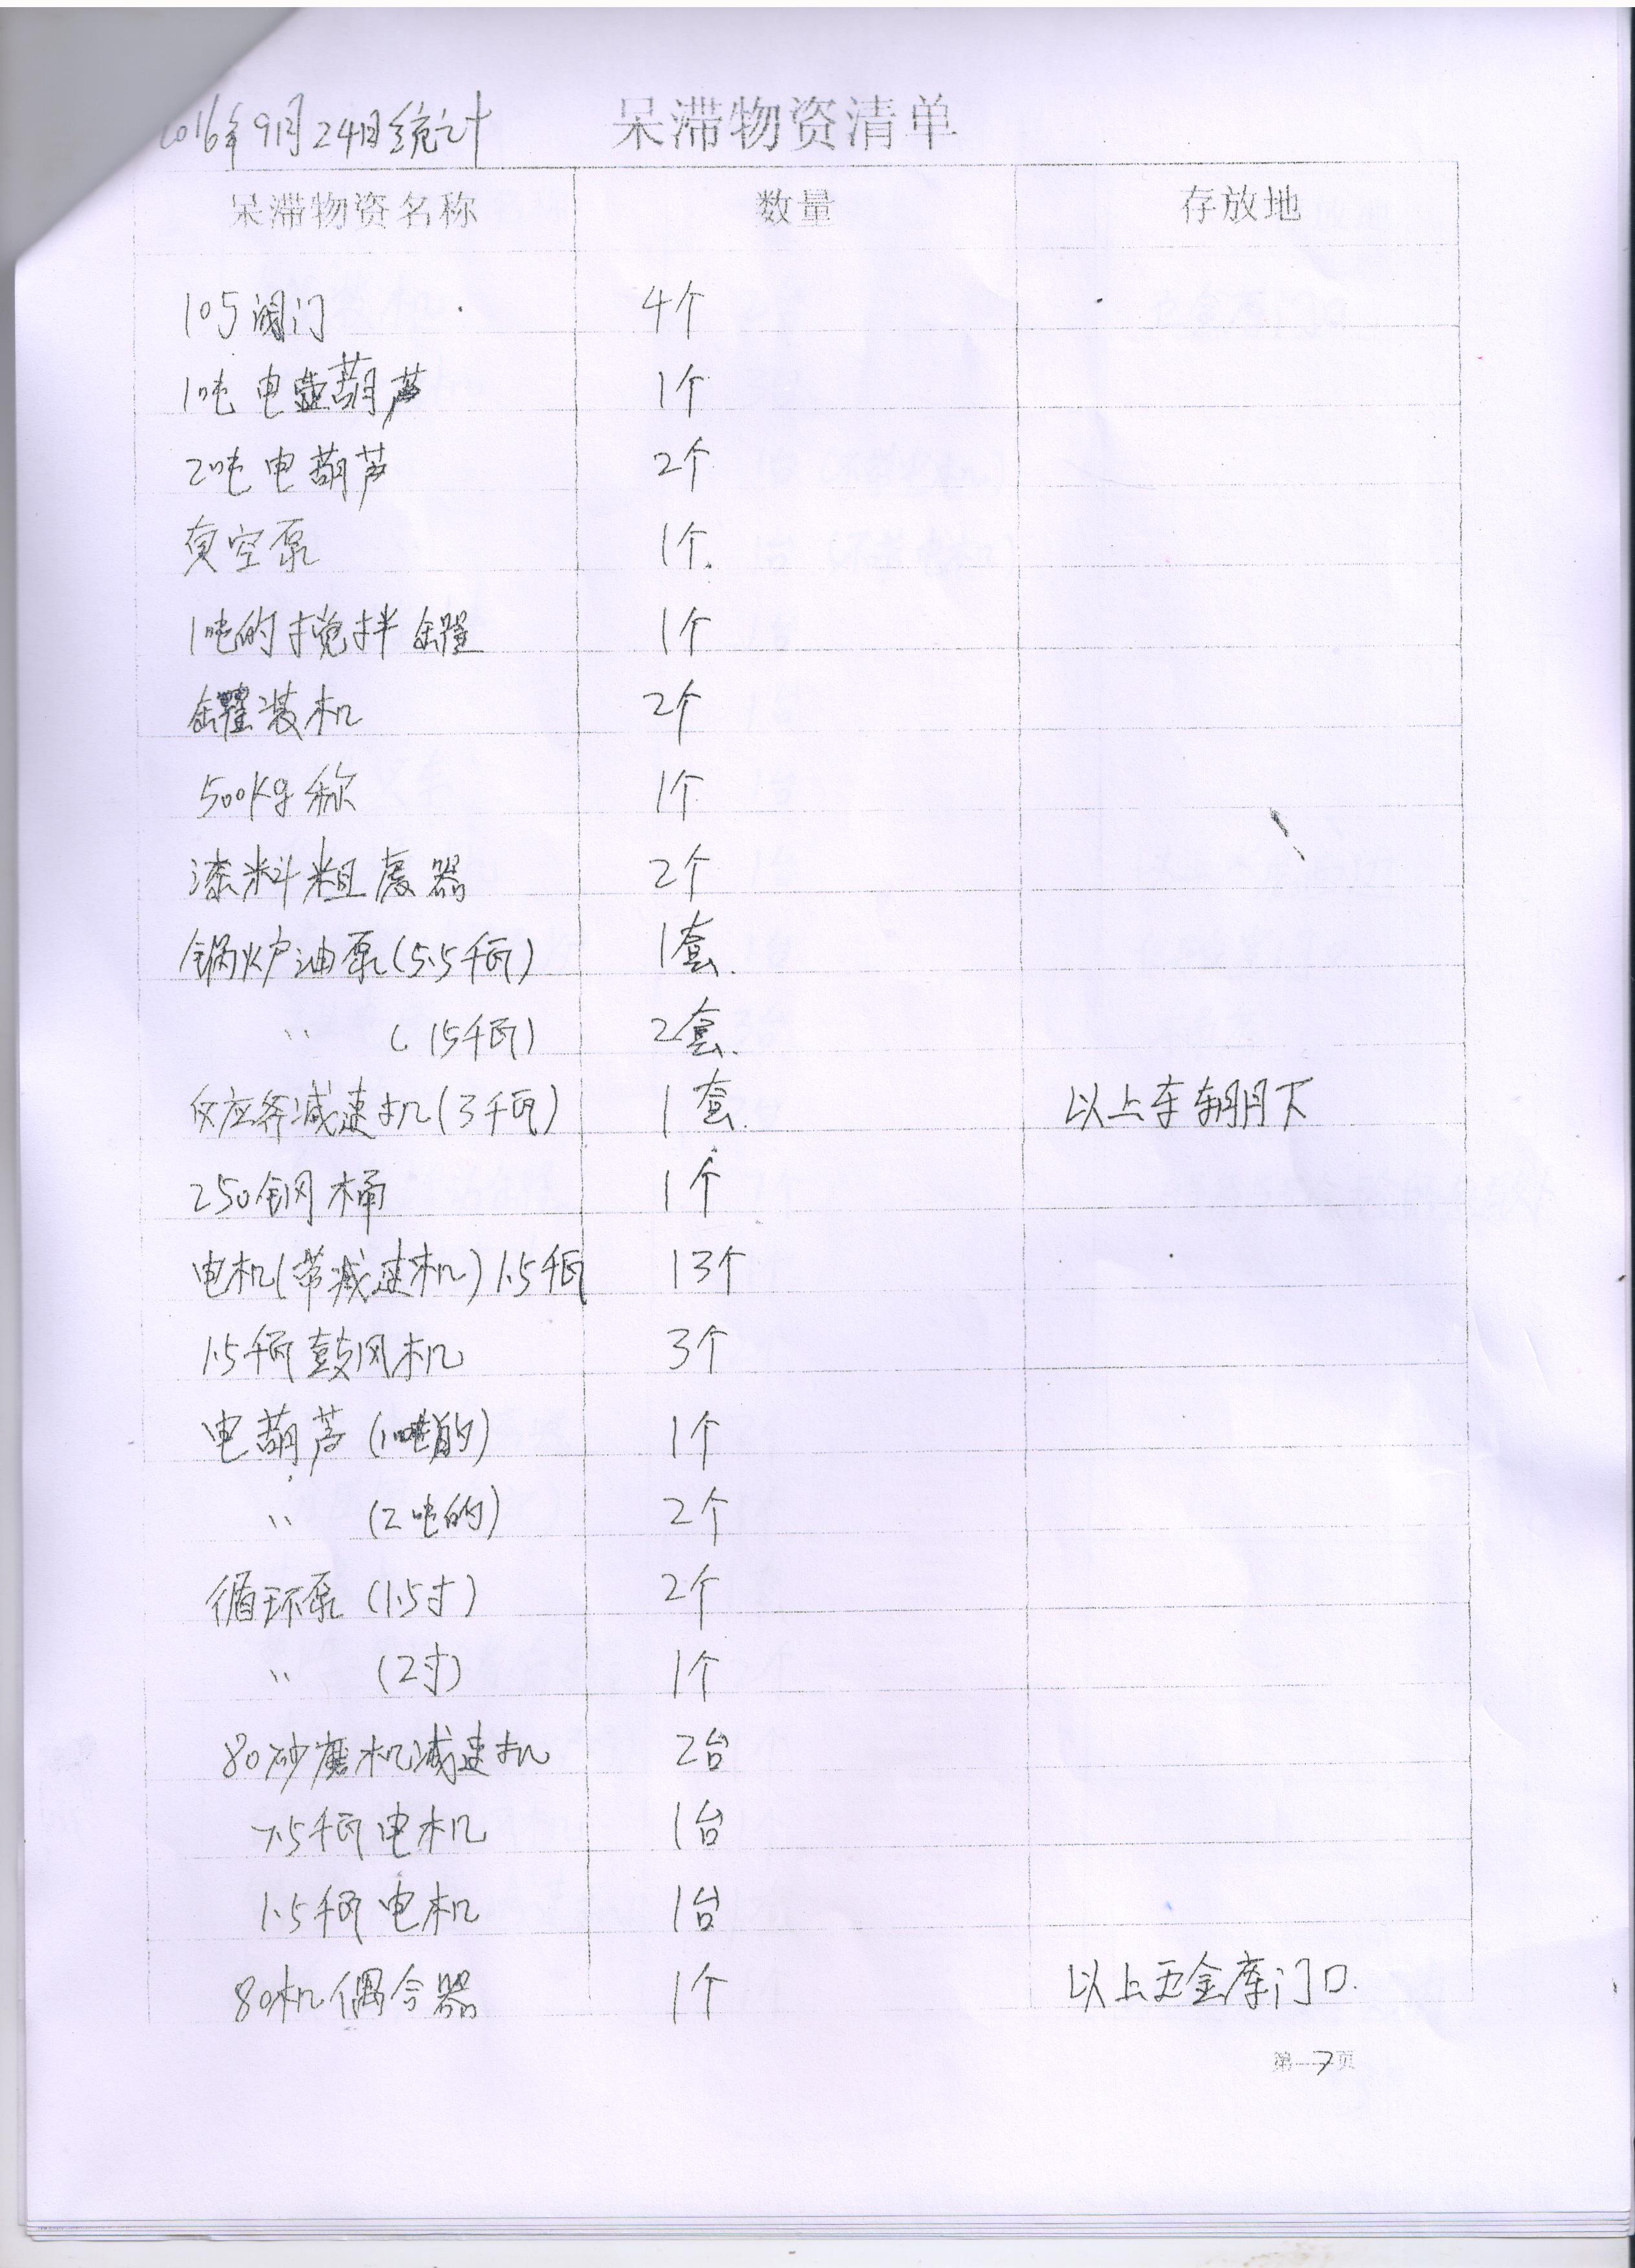 2016年9月24日统计 呆滞物资清单
呆滞物资名称 数量 存放地
105阀门 4个
1吨电葫芦 1个
2吨电葫芦 2个
真空泵 1个.
1吨的搅拌罐 1个
罐装机 2个
500Kg称 1个
漆料粗废器 2个
锅炉油泵(5.5千瓦) 1套.
〃 (15千瓦) 2套.
反应斧减速机(3千瓦) 1套. 以上车棚下
250钢桶 1个
电机(带减速机)1.5千瓦 13个
1.5千瓦鼓风机 3个
电葫芦(1吨的) 1个
〃 (2吨的) 2个
循环泵(1.5寸) 2个
〃 (2寸) 1个
80砂磨机减速机 2台
7.5千瓦电机 1台
1.5千瓦电机 1台
80机偶合器 1个 以上五金库门口.
第7页